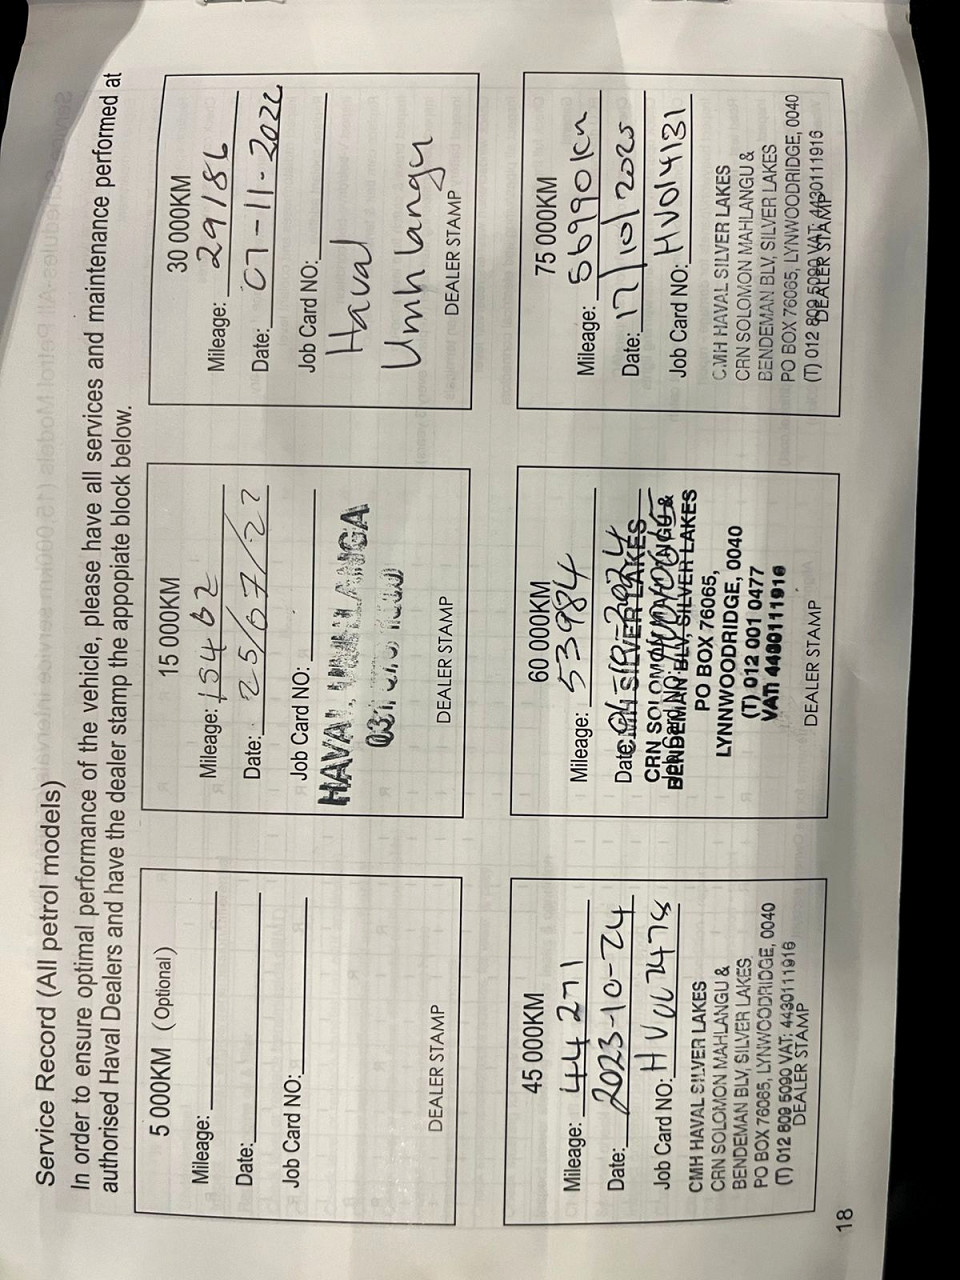 Service Record (All petrol models)
In order to ensure optimal performance of the vehicle, please have all services and maintenance performed at
authorised Haval Dealers and have the dealer stamp the appopiate block below.
5 000KM ( Optional)
Mileage:
Date:
Job Card NO:
DEALER STAMP
15 000KM
Mileage: 15462
Date: 25/07/22
Job Card NO:
HAVAL UMHLANGA
031
DEALER STAMP
30 000KM
Mileage: 29186
Date: 07-11-2022
Job Card NO:
Haval
Umhlanga
DEALER STAMP
45 000KM
Mileage: 44271
Date: 2023-10-24
Job Card NO:
CMH HAVAL SILVER LAKES
CRN SOLOMON MAHLANGU &
BENDEMAN BLV, SILVER LAKES
PO BOX 76065, LYNWOODRIDGE, 0040
(T) 012 809 5090 VAT: 4430111916
DEALER STAMP
60 000KM
Mileage: 53984
Date:
SILVER LAKES
CRN SOLOMON
BENDEMAN BLV, SILVER LAKES
PO BOX 76065,
LYNNWOODRIDGE, 0040
(T) 012 001 0477
DEALER STAMP
75 000KM
Mileage: 56990km
Date: 17/10/2025
Job Card NO: HV014131
CMH HAVAL SILVER LAKES
CRN SOLOMON MAHLANGU &
BENDEMAN BLV, SILVER LAKES
PO BOX 76065, LYNWOODRIDGE, 0040
(T) 012 809 5090 VAT: 4430111916
DEALER STAMP
18